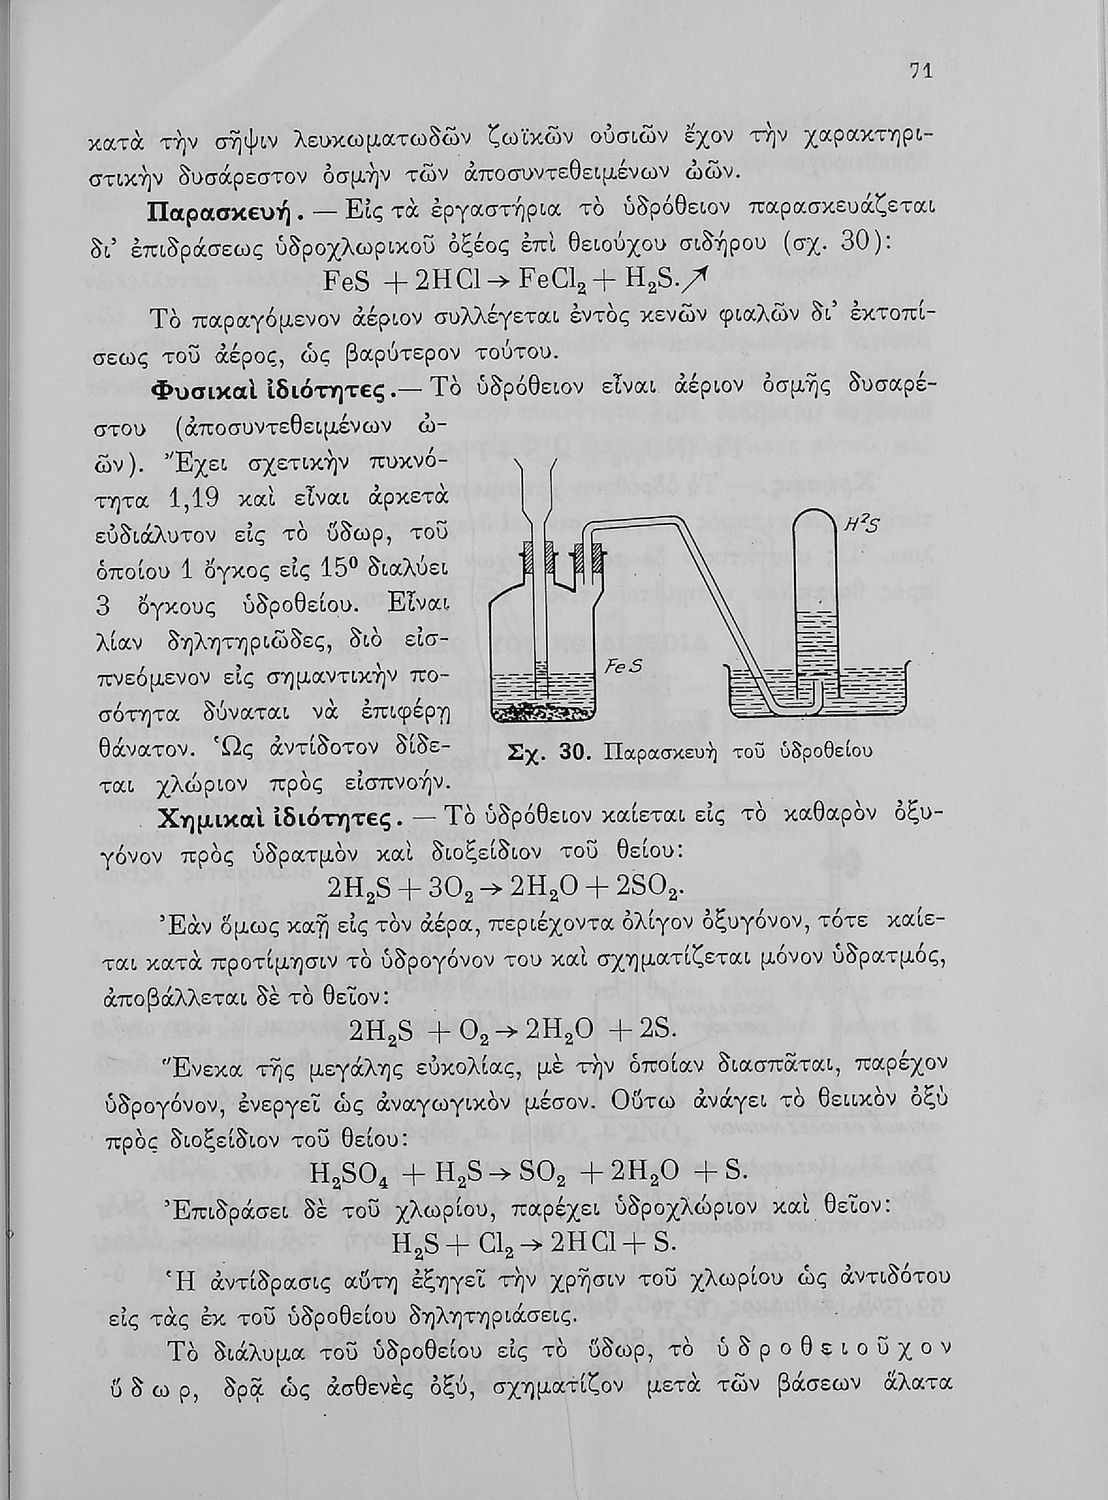 71
κατὰ τὴν σῆψιν λευκωματωδῶν ζωϊκῶν οὐσιῶν ἔχον τὴν χαρακτηρι-
στικὴν δυσάρεστον ὀσμὴν τῶν ἀποσυντεθειμένων ὠῶν.
Παρασκευή. — Εἰς τὰ ἐργαστήρια τὸ ὑδρόθειον παρασκευάζεται
δι’ ἐπιδράσεως ὑδροχλωρικοῦ ὀξέος ἐπὶ θειούχου σιδήρου (σχ. 30):
FeS + 2HCl → FeCl₂ + H₂S.↗
Τὸ παραγόμενον ἀέριον συλλέγεται ἐντὸς κενῶν φιαλῶν δι’ ἐκτοπί-
σεως τοῦ ἀέρος, ὡς βαρύτερον τούτου.
Φυσικαὶ ἰδιότητες.— Τὸ ὑδρόθειον εἶναι ἀέριον ὀσμῆς δυσαρέ-
στου (ἀποσυντεθειμένων ὠ-
ῶν). Ἔχει σχετικὴν πυκνό-
τητα 1,19 καὶ εἶναι ἀρκετὰ
εὐδιάλυτον εἰς τὸ ὕδωρ, τοῦ
ὁποίου 1 ὄγκος εἰς 15⁰ διαλύει
3 ὄγκους ὑδροθείου. Εἶναι
λίαν δηλητηριῶδες, διὸ εἰσ-
πνεόμενον εἰς σημαντικὴν πο-
σότητα δύναται νὰ ἐπιφέρῃ
θάνατον. Ὡς ἀντίδοτον δίδε-
ται χλώριον πρὸς εἰσπνοήν.
H²S
FeS
Σχ. 30. Παρασκευὴ τοῦ ὑδροθείου
Χημικαὶ ἰδιότητες. — Τὸ ὑδρόθειον καίεται εἰς τὸ καθαρὸν ὀξυ-
γόνον πρὸς ὑδρατμὸν καὶ διοξείδιον τοῦ θείου:
2H₂S + 3O₂ → 2H₂O + 2SO₂.
Ἐὰν ὅμως καῇ εἰς τὸν ἀέρα, περιέχοντα ὀλίγον ὀξυγόνον, τότε καίε-
ται κατὰ προτίμησιν τὸ ὑδρογόνον του καὶ σχηματίζεται μόνον ὑδρατμός,
ἀποβάλλεται δὲ τὸ θεῖον:
2H₂S + O₂ → 2H₂O + 2S.
Ἕνεκα τῆς μεγάλης εὐκολίας, μὲ τὴν ὁποίαν διασπᾶται, παρέχον
ὑδρογόνον, ἐνεργεῖ ὡς ἀναγωγικὸν μέσον. Οὕτω ἀνάγει τὸ θειικὸν ὀξὺ
πρὸς διοξείδιον τοῦ θείου:
H₂SO₄ + H₂S → SO₂ + 2H₂O + S.
Ἐπιδράσει δὲ τοῦ χλωρίου, παρέχει ὑδροχλώριον καὶ θεῖον:
H₂S + Cl₂ → 2HCl + S.
Ἡ ἀντίδρασις αὕτη ἐξηγεῖ τὴν χρῆσιν τοῦ χλωρίου ὡς ἀντιδότου
εἰς τὰς ἐκ τοῦ ὑδροθείου δηλητηριάσεις.
Τὸ διάλυμα τοῦ ὑδροθείου εἰς τὸ ὕδωρ, τὸ ὑδροθειοῦχον
ὕδωρ, δρᾷ ὡς ἀσθενὲς ὀξύ, σχηματίζον μετὰ τῶν βάσεων ἅλατα